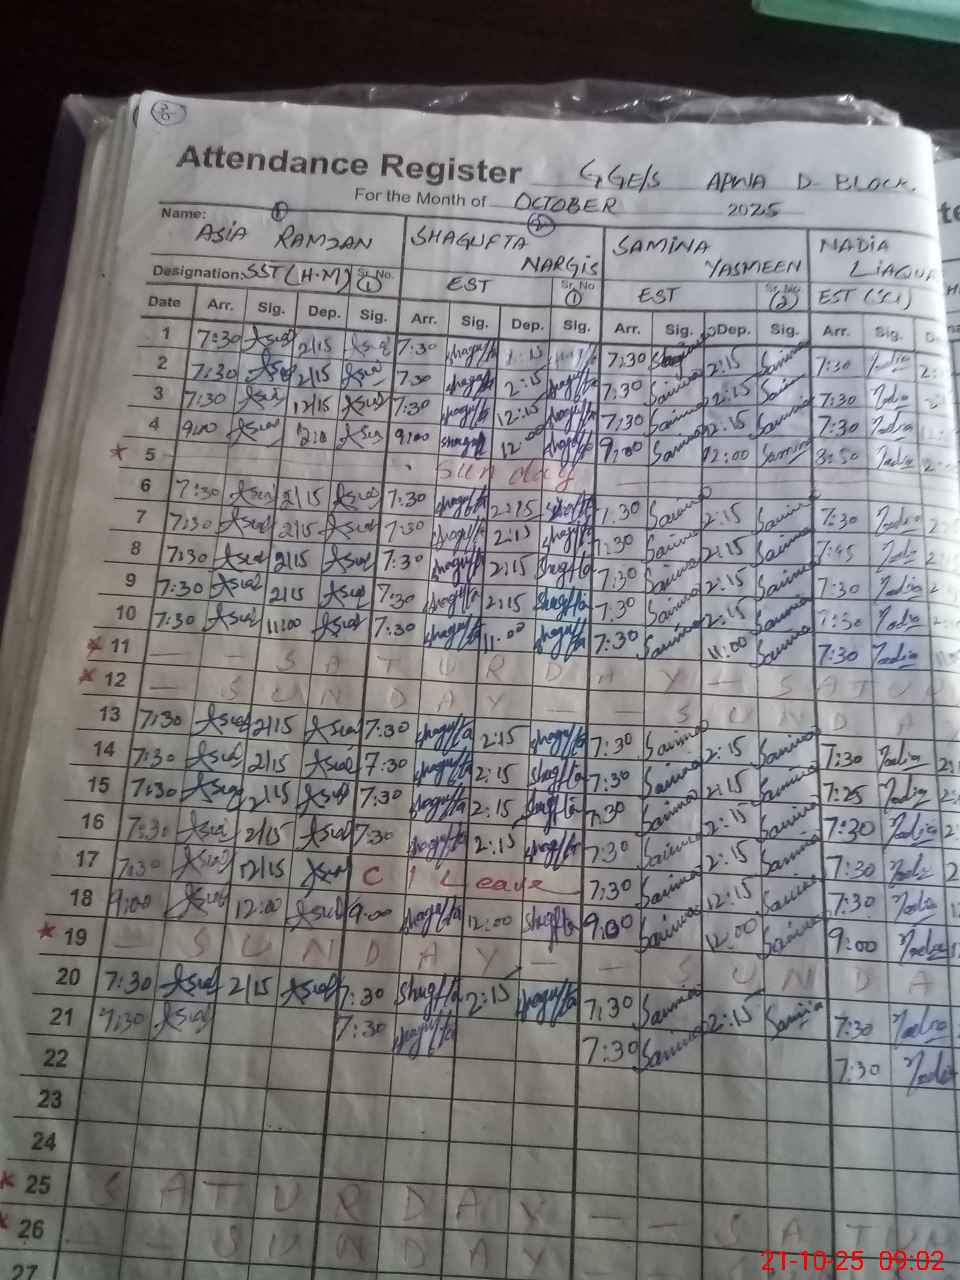 Attendance Register GGE/S APWA D-BLOCK.
For the Month of OCTOBER 2025
Name: ① ②
ASIA RAMZAN SHAGUFTA NARGIS SAMINA YASMEEN NADIA
Designation: SST (H.M) Sr. No. (1) EST Sr. No. (1) EST Sr. No. (2) EST (Sci)
Date Arr. Sig. Dep. Sig. Arr. Sig. Dep. Sig. Arr. Sig. Dep. Sig. Arr. Sig.
1 7:30 Asia 2:15 Asia 7:30 Shagufta 2:15 7:30 Samina 2:15 Samina 7:30 Nadia
2 7:30 Asia 2:15 Asia 7:30 Shagufta 2:15 Shagufta 7:30 Samina 2:15 Samina 7:30 Nadia
3 7:30 Asia 12:15 Asia 7:30 Shagufta 12:15 Shagufta 7:30 Samina 12:15 Samina 7:30 Nadia
4 9:00 Asia Asia 9:00 Shagufta 12:00 Shagufta 9:00 Samina 12:00 Samina Nadia
* 5 Sunday
6 7:30 Asia 2:15 Asia 7:30 Shagufta 2:15 Shagufta 7:30 Samina 2:15 Samina 7:30 Nadia
7 7:30 Asia 2:15 Asia 7:30 Shagufta 2:15 Shagufta 7:30 Samina 2:15 Samina 7:45 Nadia
8 7:30 Asia 2:15 Asia 7:30 Shagufta 2:15 Shagufta 7:30 Samina 2:15 Samina 7:30 Nadia
9 7:30 Asia 2:15 Asia 7:30 Shagufta 2:15 Shagufta 7:30 Samina 2:15 Samina 7:30 Nadia
10 7:30 Asia 11:00 Asia 7:30 Shagufta 11:00 Shagufta 7:30 Samina 11:00 Samina 7:30 Nadia
* 11 — — S A T U R D A Y — S A T U R
* 12 — S U N D A Y — — S U N D A
13 7:30 Asia 2:15 Asia 7:30 Shagufta 2:15 Shagufta 7:30 Samina 2:15 Samina 7:30 Nadia
14 7:30 Asia 2:15 Asia 7:30 Shagufta 2:15 Shagufta 7:30 Samina 2:15 Samina 7:25 Nadia
15 7:30 Asia 2:15 Asia 7:30 Shagufta 2:15 Shagufta 7:30 Samina 2:15 Samina 7:30 Nadia
16 7:30 Asia 2:15 Asia 7:30 Shagufta 2:15 Shagufta 7:30 Samina 2:15 Samina 7:30 Nadia
17 7:30 Asia 12:15 Asia C / Leave 7:30 Samina 12:15 Samina 7:30 Nadia
18 9:00 Asia 12:00 Asia 9:00 Shagufta 12:00 Shagufta 9:00 Samina 12:00 Samina 9:00 Nadia
* 19 — S U N D A Y — — S U N D A
20 7:30 Asia 2:15 Asia 7:30 Shagufta 2:15 Shagufta 7:30 Samina 2:15 Samina 7:30 Nadia
21 7:30 Asia 7:30 Shagufta 7:30 Samina 7:30 Nadia
22
23
24
* 25 S A T U R D A Y — — S A T U R
* 26 — — S U N D A Y —
27
21-10-25 09:02